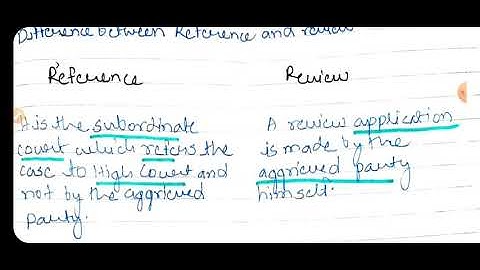 Difference between Reference and review
Reference
It is the subordinate
court which refers the
case to High Court and
not by the aggrieved
party.
Review
A review application
is made by the
aggrieved party
himself.